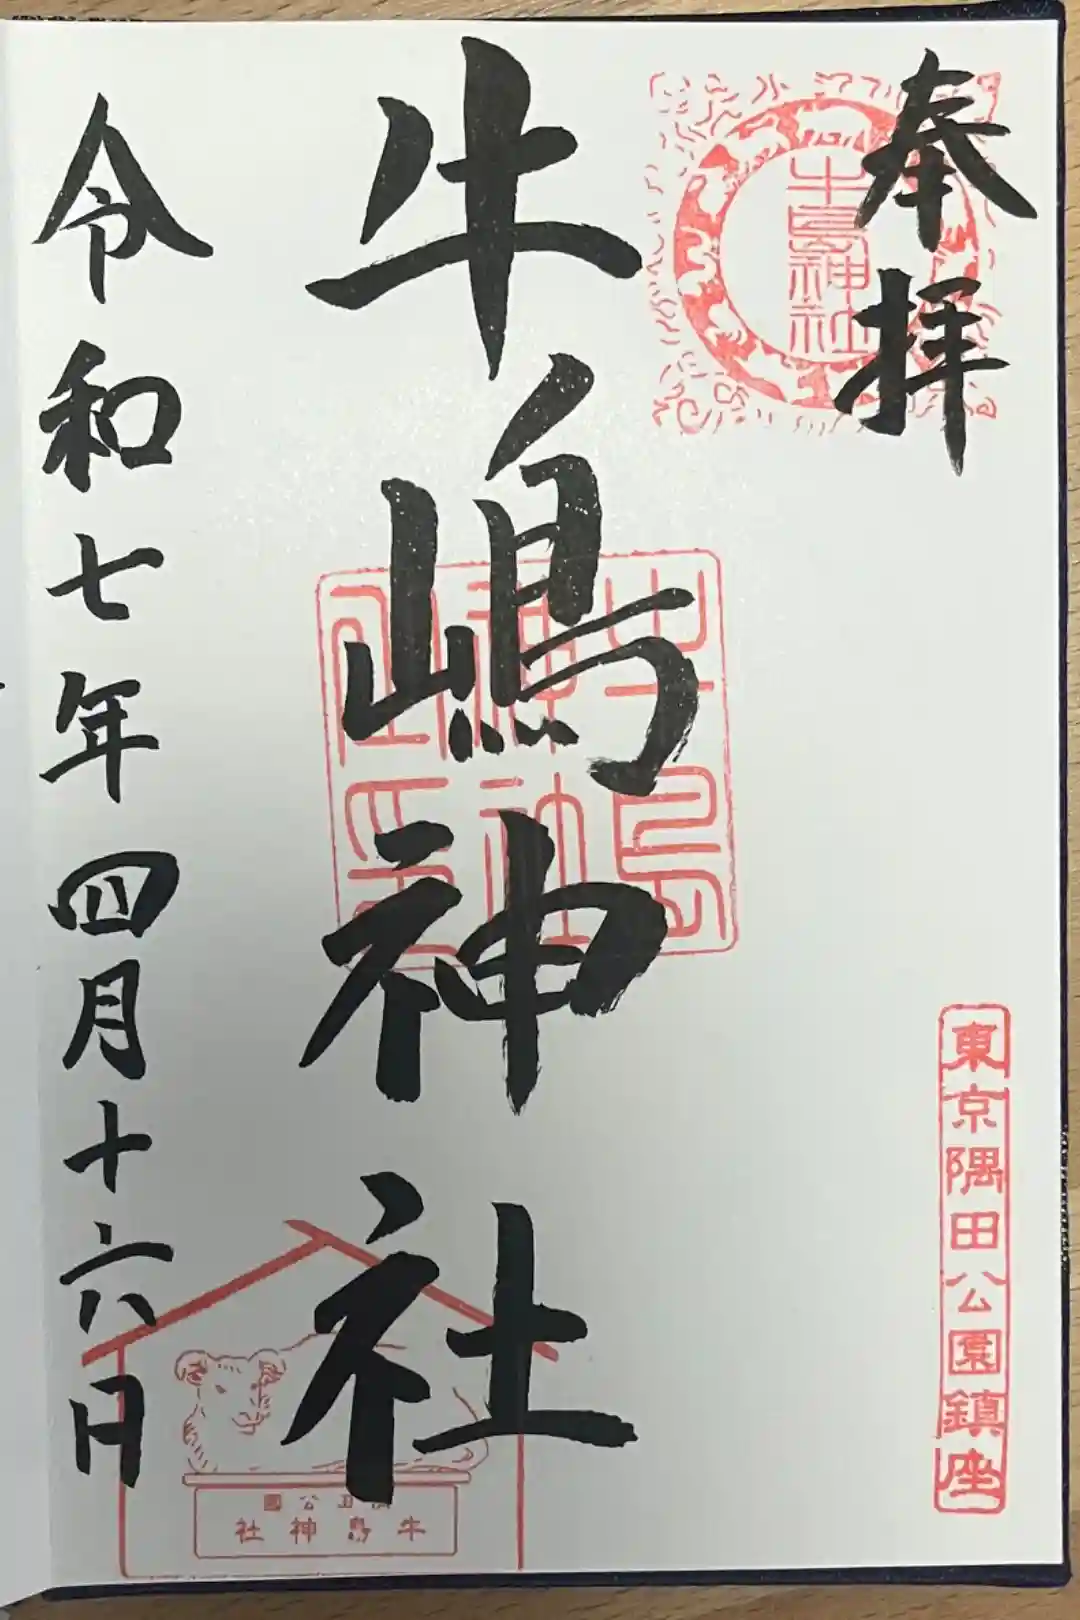 奉拝
牛島神社
東京隅田公園鎮座
牛嶋神社
牛島神社社印
公園
牛島神社
令和七年四月十六日